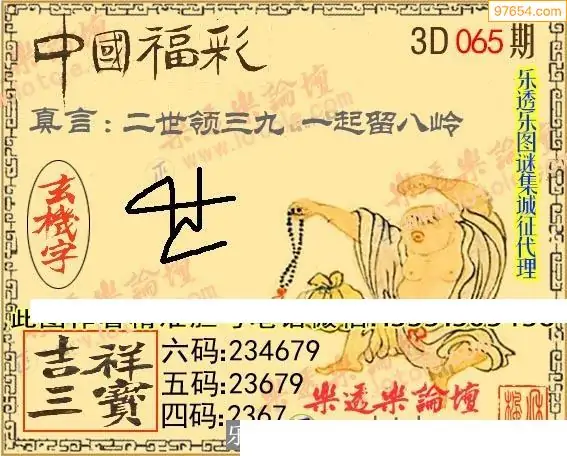 97654.com
中國福彩
3D 065期
真言：二世领三九 一起留八岭
乐透乐图谜集城征代理
玄機字
吉祥三寶
六码:234679
五码:23679
四码:2367
樂透樂論壇
乐